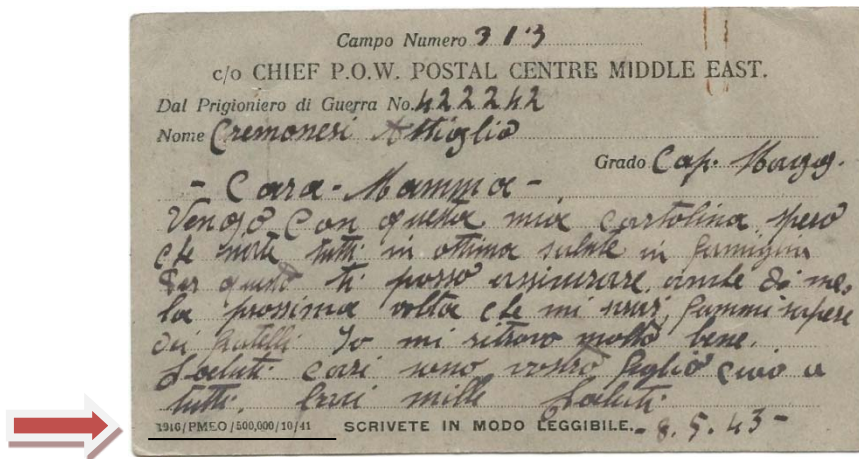 Campo Numero 313
c/o CHIEF P.O.W. POSTAL CENTRE MIDDLE EAST.
Dal Prigioniero di Guerra No. 422242
Nome Cremonesi Attiglio
Grado Cap. Magg.
- Cara - Mamma -
Vengo Con questa mia Cartolina spero
che siate tutti in ottima salute in famiglia
Per questo ti posso assicurare anche di me,
la prossima volta che mi scrivi, fammi sapere
dei fratelli Io mi ritrovo molto bene.
Saluti cari sono vostro figlio Ciao a
tutti. mille Saluti.
1946/PMEO/500,000/10/41 SCRIVETE IN MODO LEGGIBILE. - 8.5.43 -